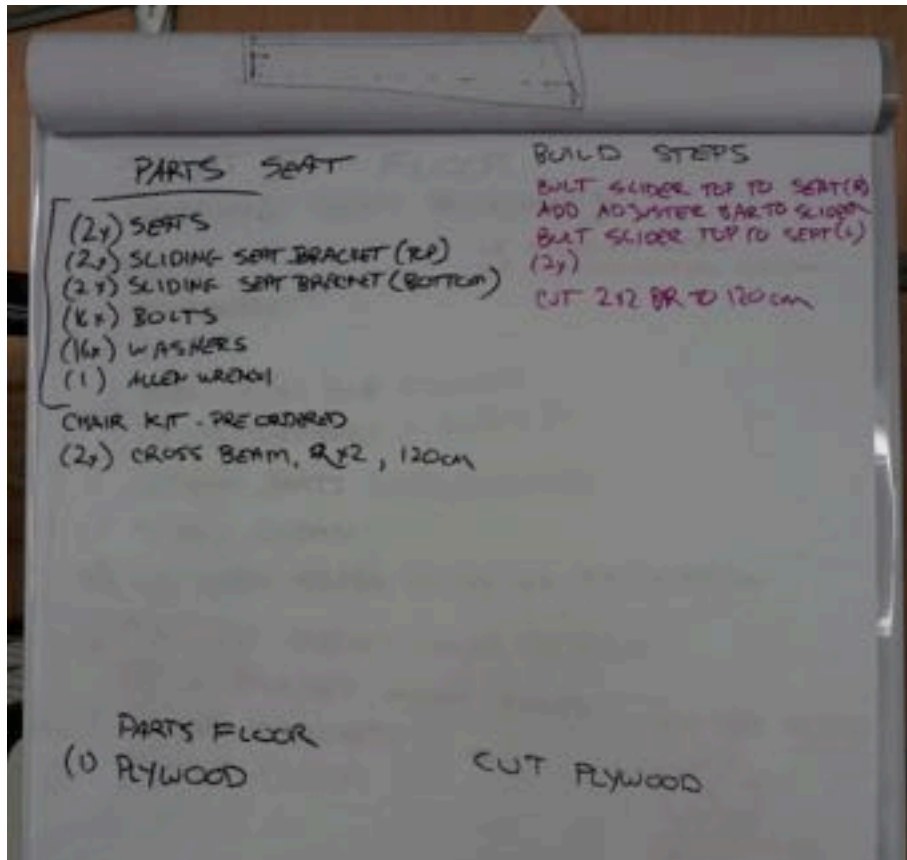 PARTS SEAT
(2x) SEATS
(2x) SLIDING SEAT BRACKET (TOP)
(2x) SLIDING SEAT BRACKET (BOTTOM)
BOLTS
(16x) WASHERS
(1) ALLEN WRENCH
CHAIR KIT - PREORDERED
(2x) CROSS BEAM, 2x2, 120cm
BUILD STEPS
BOLT SLIDER TOP TO SEAT(R)
ADD ADJUSTER BAR TO SLIDER
BOLT SLIDER TOP TO SEAT(L)
(2x)
CUT 2x2 TO 120cm
PARTS FLOOR
(1) PLYWOOD
CUT PLYWOOD